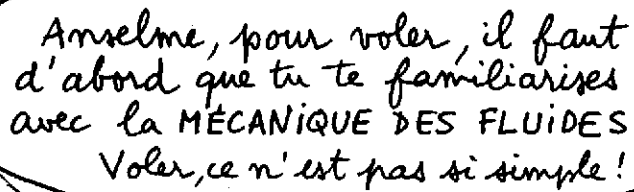 Anselme, pour voler, il faut
d'abord que tu te familiarises
avec la MÉCANiQUE DES FLUiDES
Voler, ce n'est pas si simple !